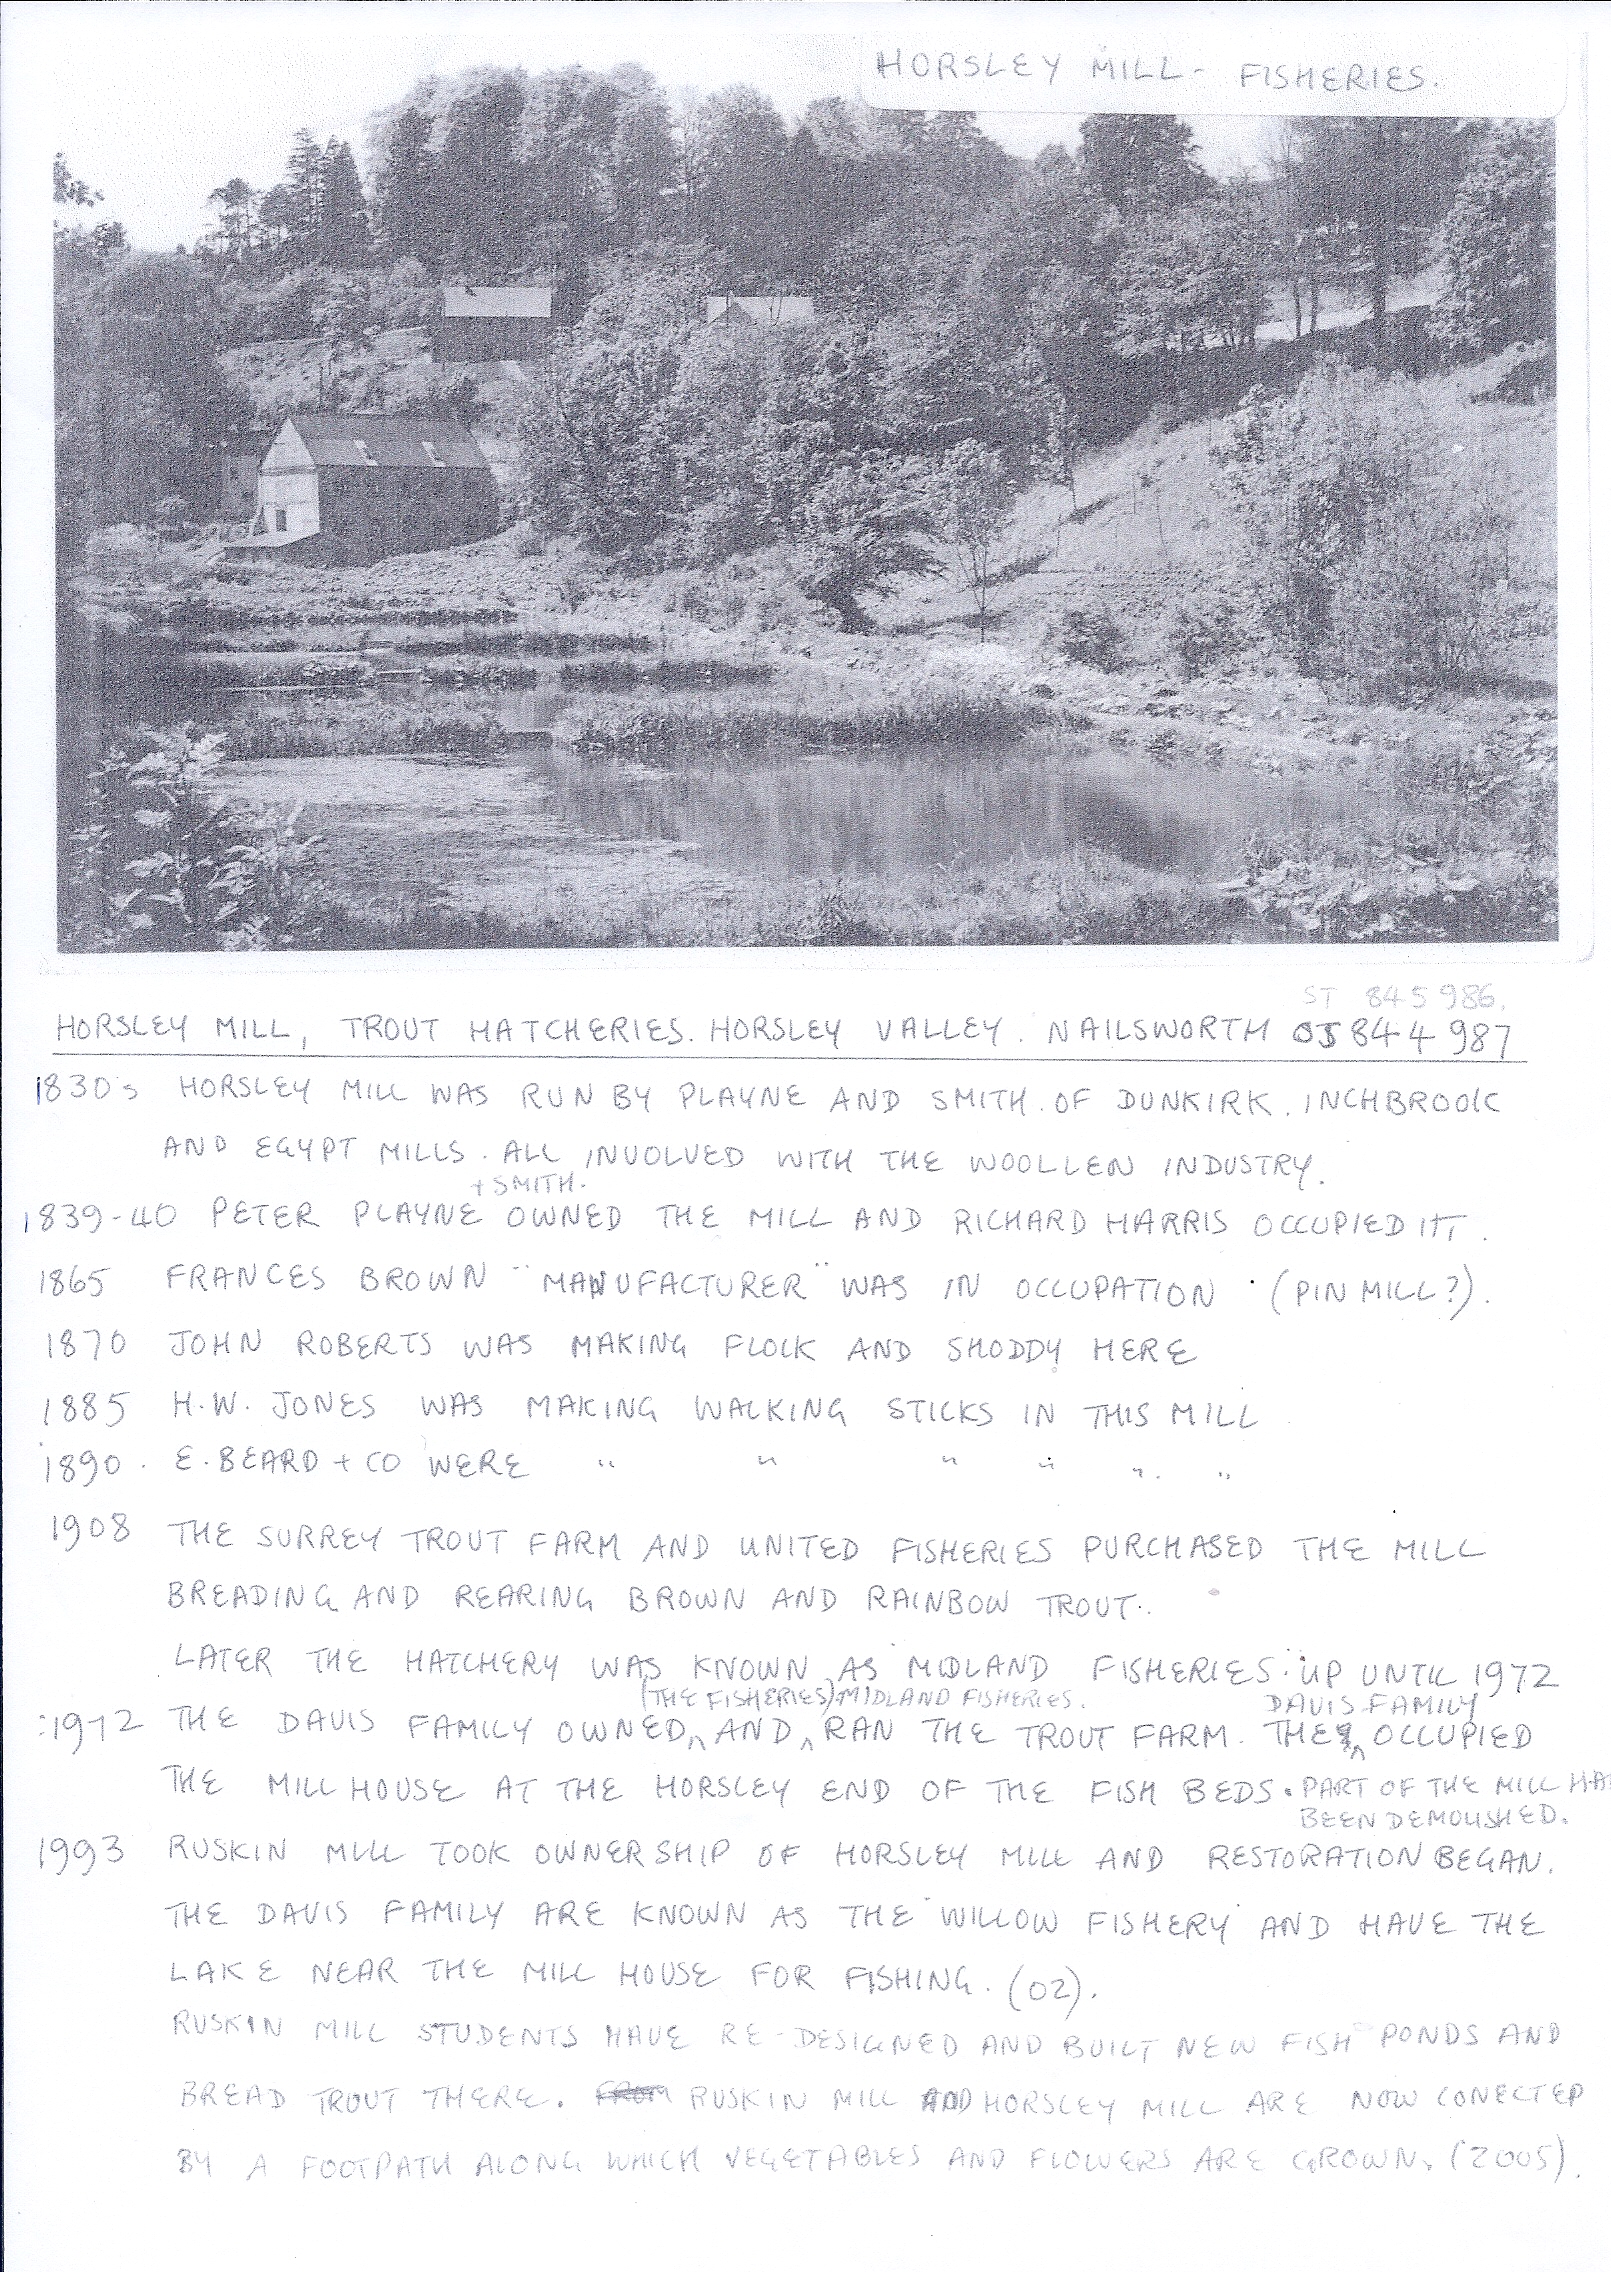 HORSLEY MILL - FISHERIES.
ST 845 986.
HORSLEY MILL, TROUT HATCHERIES. HORSLEY VALLEY. NAILSWORTH OS 844 987
1830s HORSLEY MILL WAS RUN BY PLAYNE AND SMITH. OF DUNKIRK. INCHBROOK
AND EGYPT MILLS. ALL INVOLVED WITH THE WOOLLEN INDUSTRY.
+ SMITH.
1839-40 PETER PLAYNE OWNED THE MILL AND RICHARD HARRIS OCCUPIED IT.
1865 FRANCES BROWN "MANUFACTURER" WAS IN OCCUPATION (PIN MILL?).
1870 JOHN ROBERTS WAS MAKING FLOCK AND SHODDY HERE
1885 H.W. JONES WAS MAKING WALKING STICKS IN THIS MILL
1890. E. BEARD + CO WERE " " " " " "
1908 THE SURREY TROUT FARM AND UNITED FISHERIES PURCHASED THE MILL
BREADING AND REARING BROWN AND RAINBOW TROUT.
LATER THE HATCHERY WAS KNOWN AS MIDLAND FISHERIES. UP UNTIL 1972
(THE FISHERIES) MIDLAND FISHERIES. DAVIS FAMILY
1972 THE DAVIS FAMILY OWNED, AND RAN THE TROUT FARM. THEY OCCUPIED
THE MILL HOUSE AT THE HORSLEY END OF THE FISH BEDS. PART OF THE MILL HA
BEEN DEMOLISHED.
1993 RUSKIN MILL TOOK OWNERSHIP OF HORSLEY MILL AND RESTORATION BEGAN.
THE DAVIS FAMILY ARE KNOWN AS THE "WILLOW FISHERY" AND HAVE THE
LAKE NEAR THE MILL HOUSE FOR FISHING. (02).
RUSKIN MILL STUDENTS HAVE RE-DESIGNED AND BUILT NEW FISH PONDS AND
BREAD TROUT THERE. FROM RUSKIN MILL AND HORSLEY MILL ARE NOW CONECTED
BY A FOOTPATH ALONG WHICH VEGETABLES AND FLOWERS ARE GROWN. (2005).